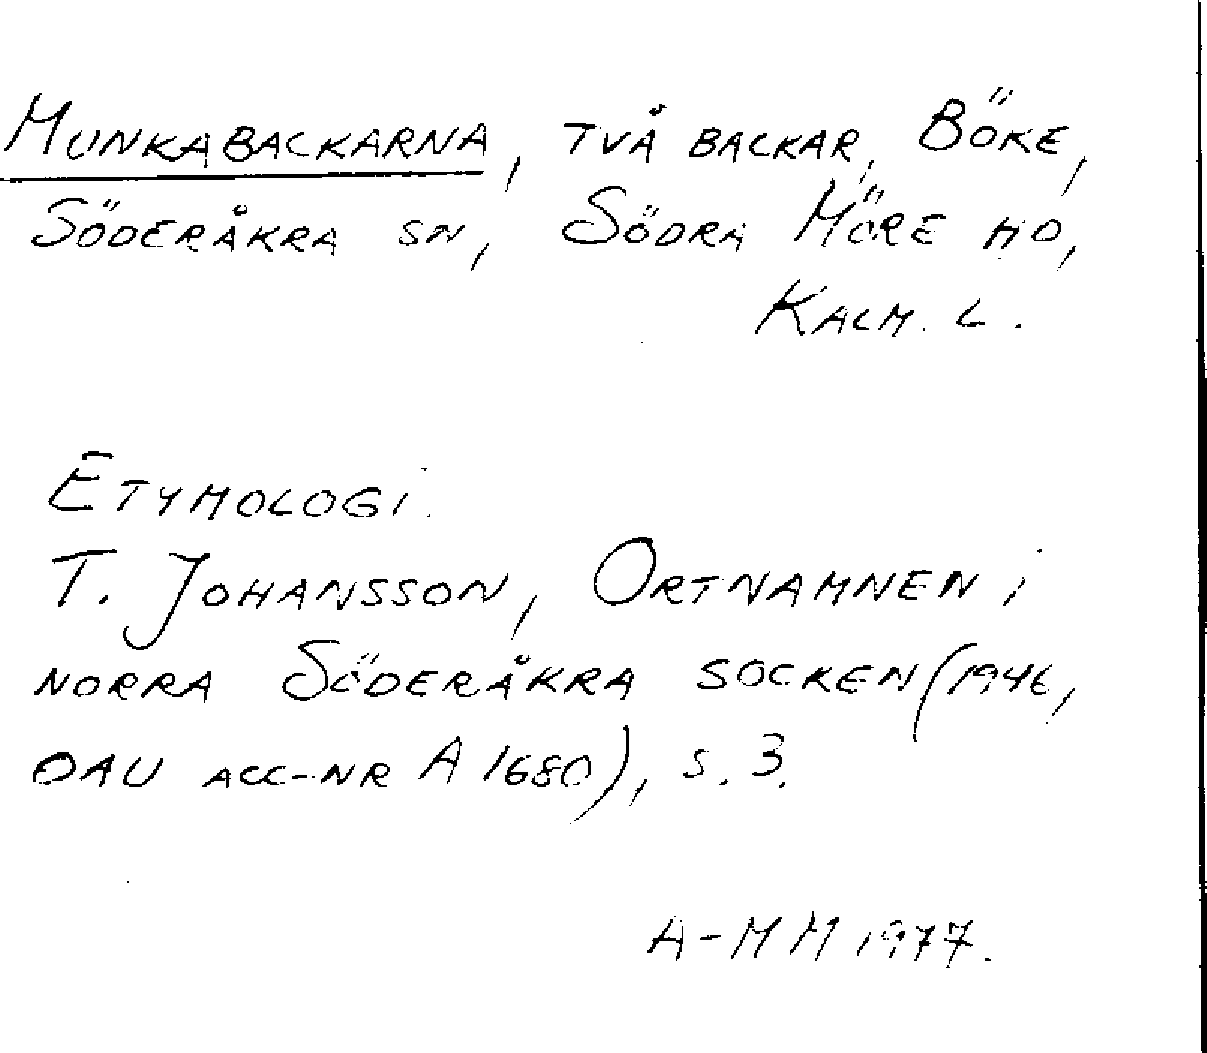 Munkabackarna, två backar, Böke,
Söderåkra sn, Södra Möre hd,
Kalm. l.
Etymologi.
T. Johansson, Ortnamnen i
norra Söderåkra socken (1946,
OAU acc-nr A 1680), s. 3.
A-MM 1977.